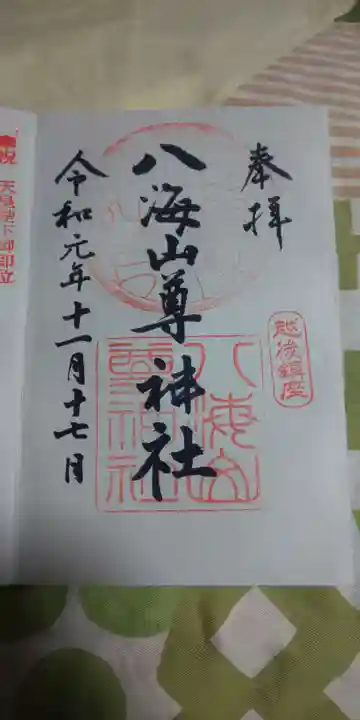 奉拝
越後鎮座
八海山尊神社
八海山
尊神社
令和元年十一月十七日
祝
天皇陛下御即位